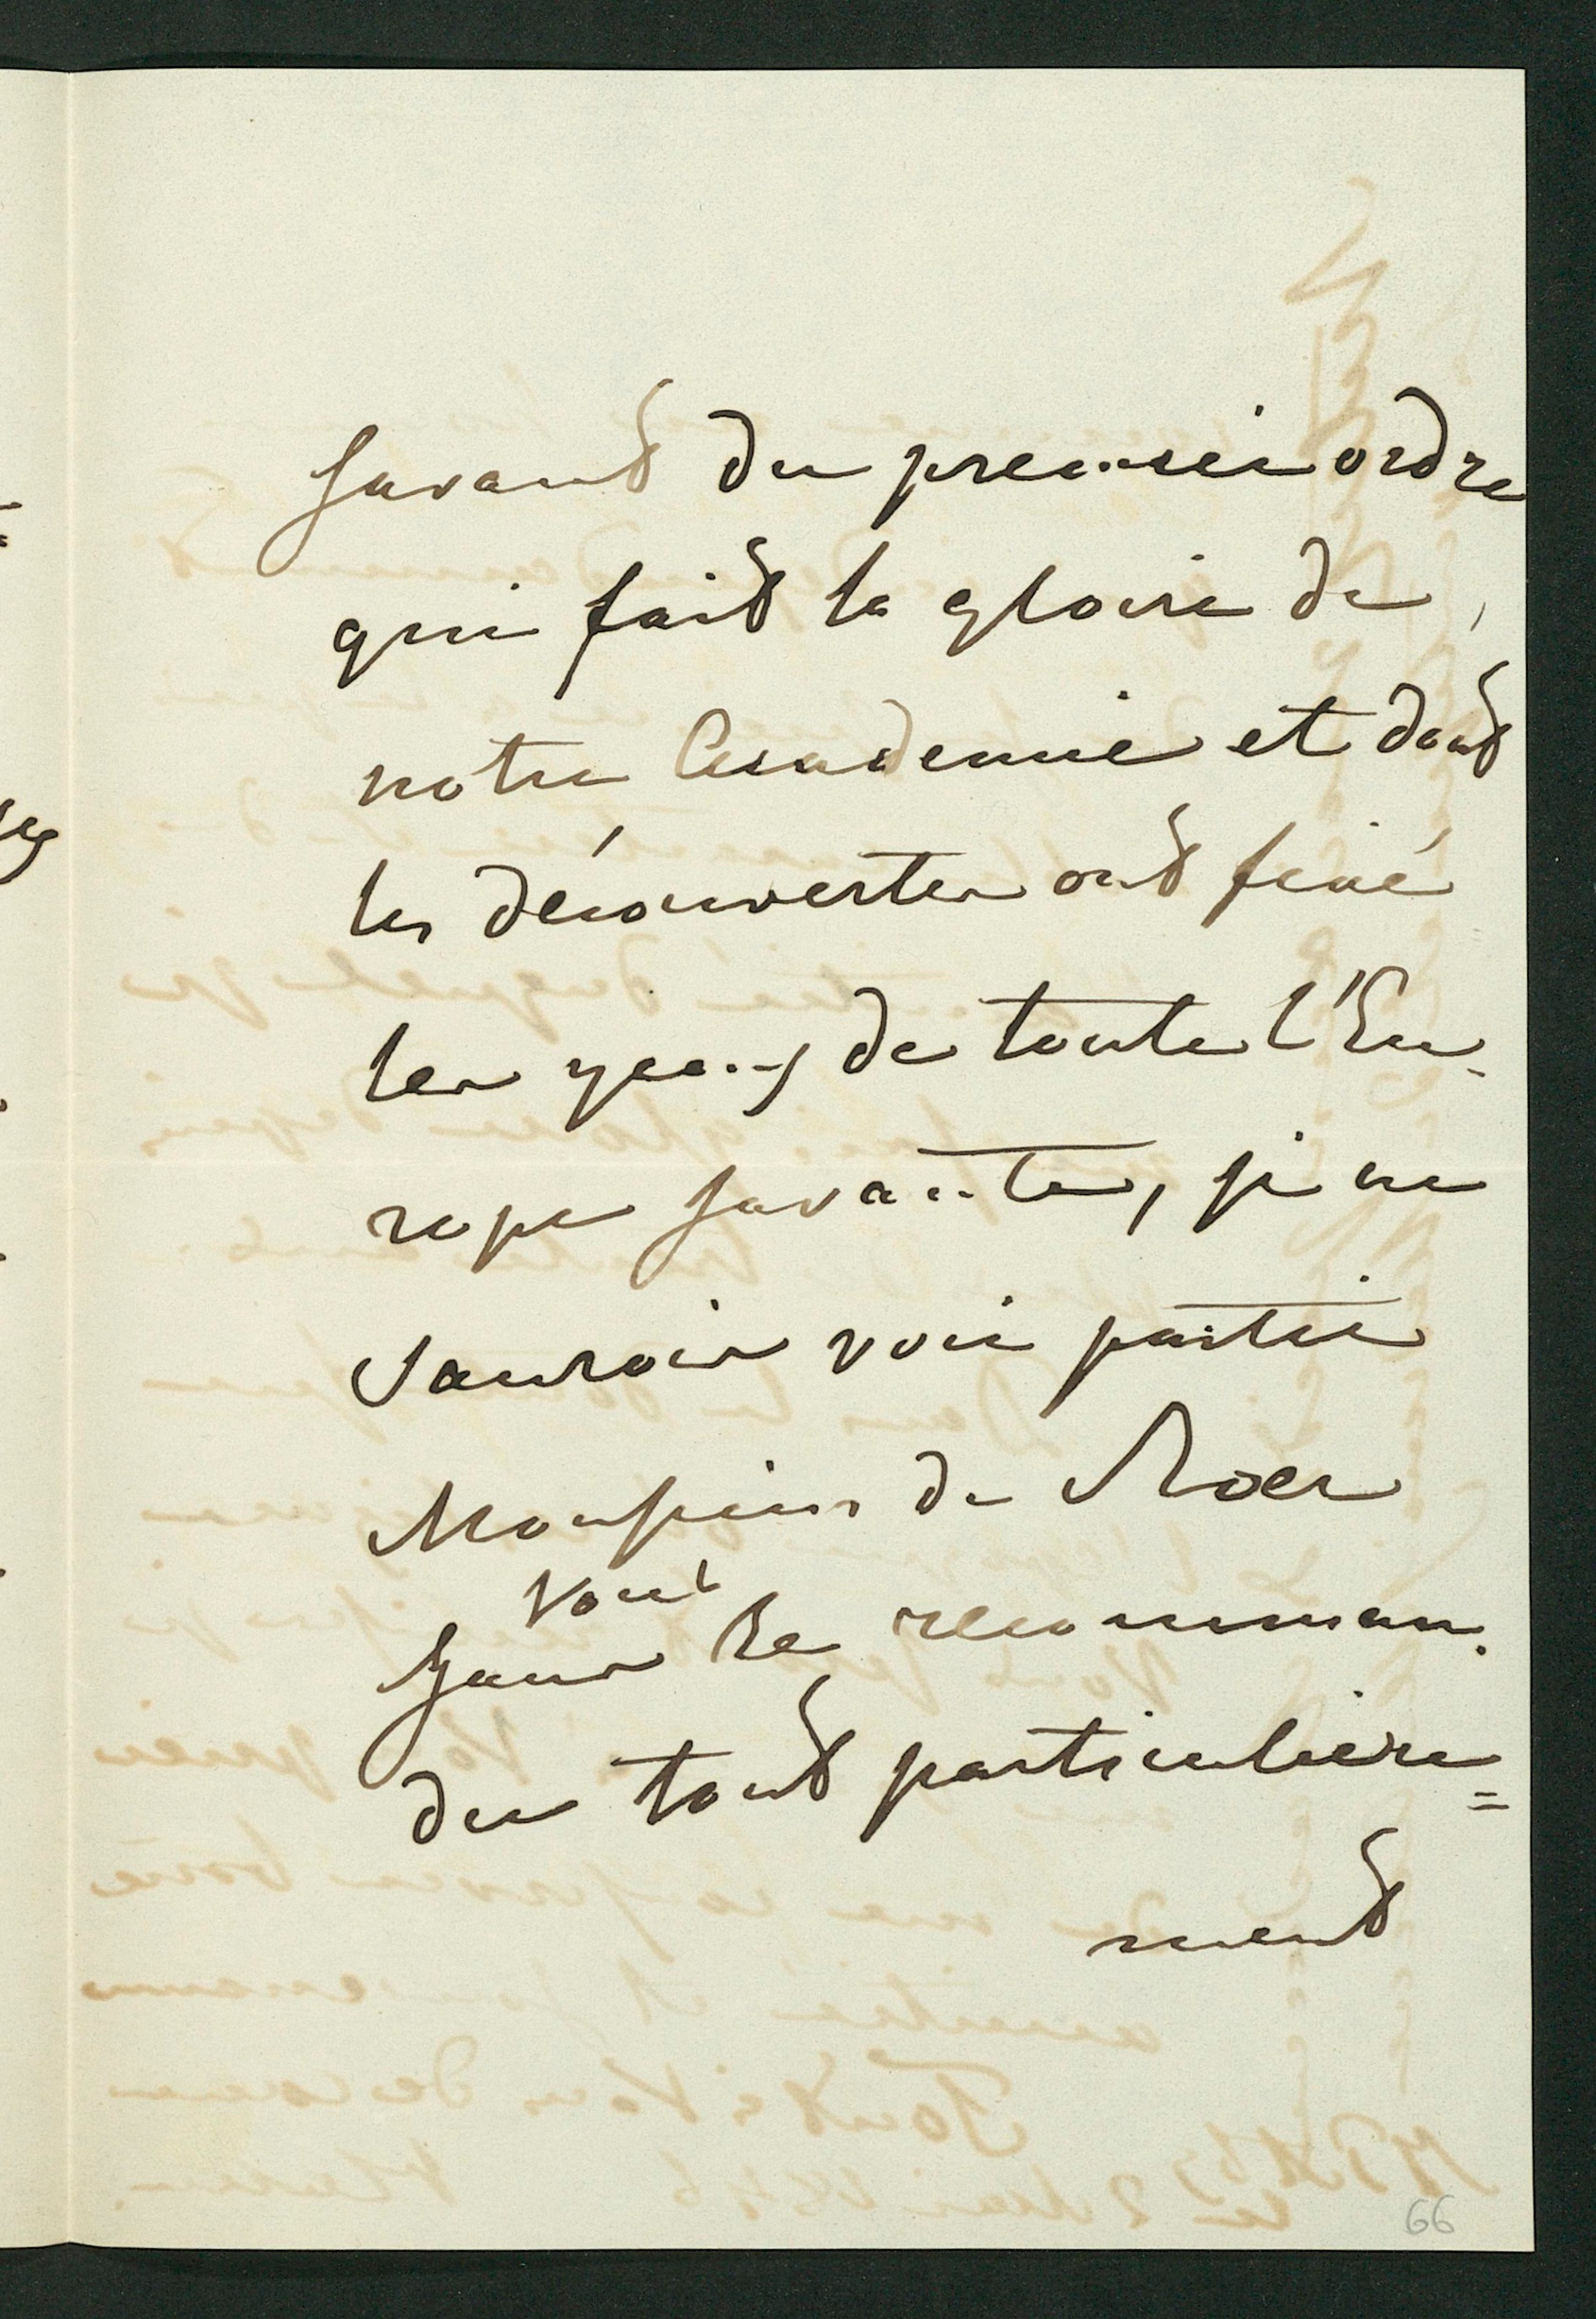 savant du premier ordre
qui fait la gloire de
notre Academie et dont
les découvertes ont fixé
les yeux de toute l'Eu-
rope savante, je ne
saurois voir partir
Monsieur de
vous
sans le recomman-
der tout particuliere=
ment
66